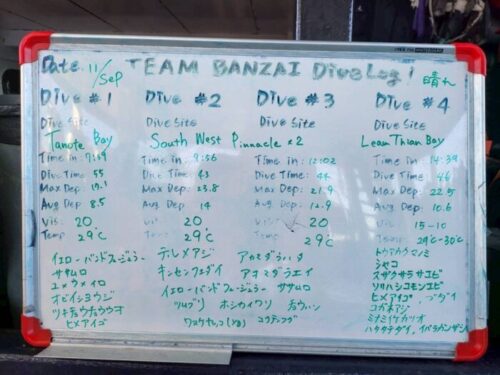 Date 11/Sep TEAM BANZAI Dive Log! 晴れ
Dive #1
Dive Site
Tanote Bay
Time in: 7:59
Dive Time 55
Max Dep:
Avg Dep 8.5
Vis: 20
Temp 29℃
イエローバンドフュージュラー
ササムロ
ユメウメイロ
オビイシヨウジ
ヒメアイゴ
Dive #2
Dive Site
South West Pinnacle ×2
Time in: 9:56
Dive Time 43
Max Dep: 23.8
Avg Dep 14
Vis 20
Temp 29℃
テルメアジ
キンセンフエダイ
イエローバンドフュージュラー ササムロ
ツムブリ ホシカイワリ
Dive #3
Dive Site
Time in: 12:02
Dive Time: 44
Max Dep: 21.9
Avg Dep: 12.9
Vis: 20
Temp: 29℃
アカマダラハタ
アオマダラエイ
コクテンフグ
Dive #4
Dive Site
Leam Thian Bay
Time in: 14:39
Dive Time 46
Max Dep: 22.5
Avg Dep: 10.6
Vis: 15-10
Temp: 29℃-30℃
トウアカクマノミ
シャコ
スザクサラサエビ
ソリハシコモンエビ
ヒメアイゴ ブダイ
コガネアジ
ハタタテダイ、イバラカンザシ